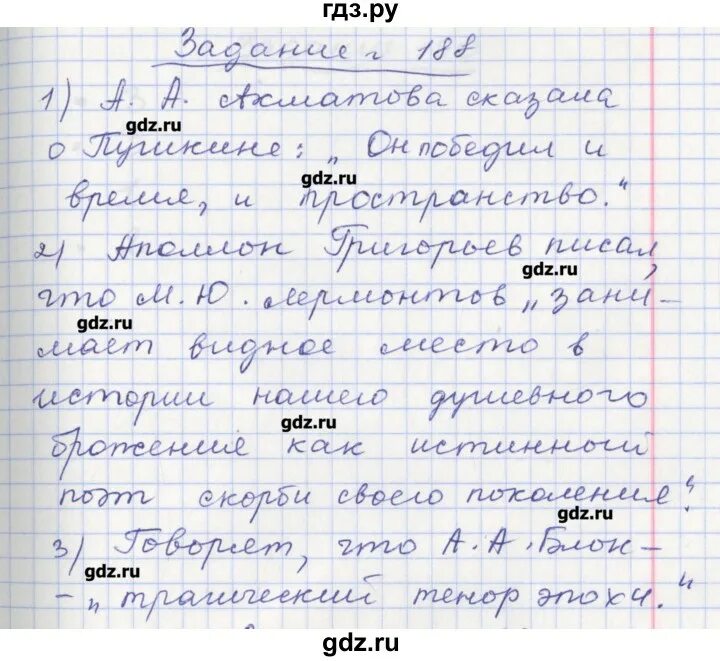 гдз.ру
Задание № 188
1) А. А. Ахматова сказала
gdz.ru
о Пушкине: „Он победил и
gdz.ru
время, и пространство."
2) Аполлон Григорьев писал,
gdz.ru
что М. Ю. Лермонтов „зани-
gdz.ru
мает видное место в
истории нашего душевного
gdz.ru
брожения как истинный
поэт скорби своего поколения".
gdz.ru
3) Говорят, что А. А. Блок-
gdz.ru
-„трагический тенор эпохи."
gdz.ru